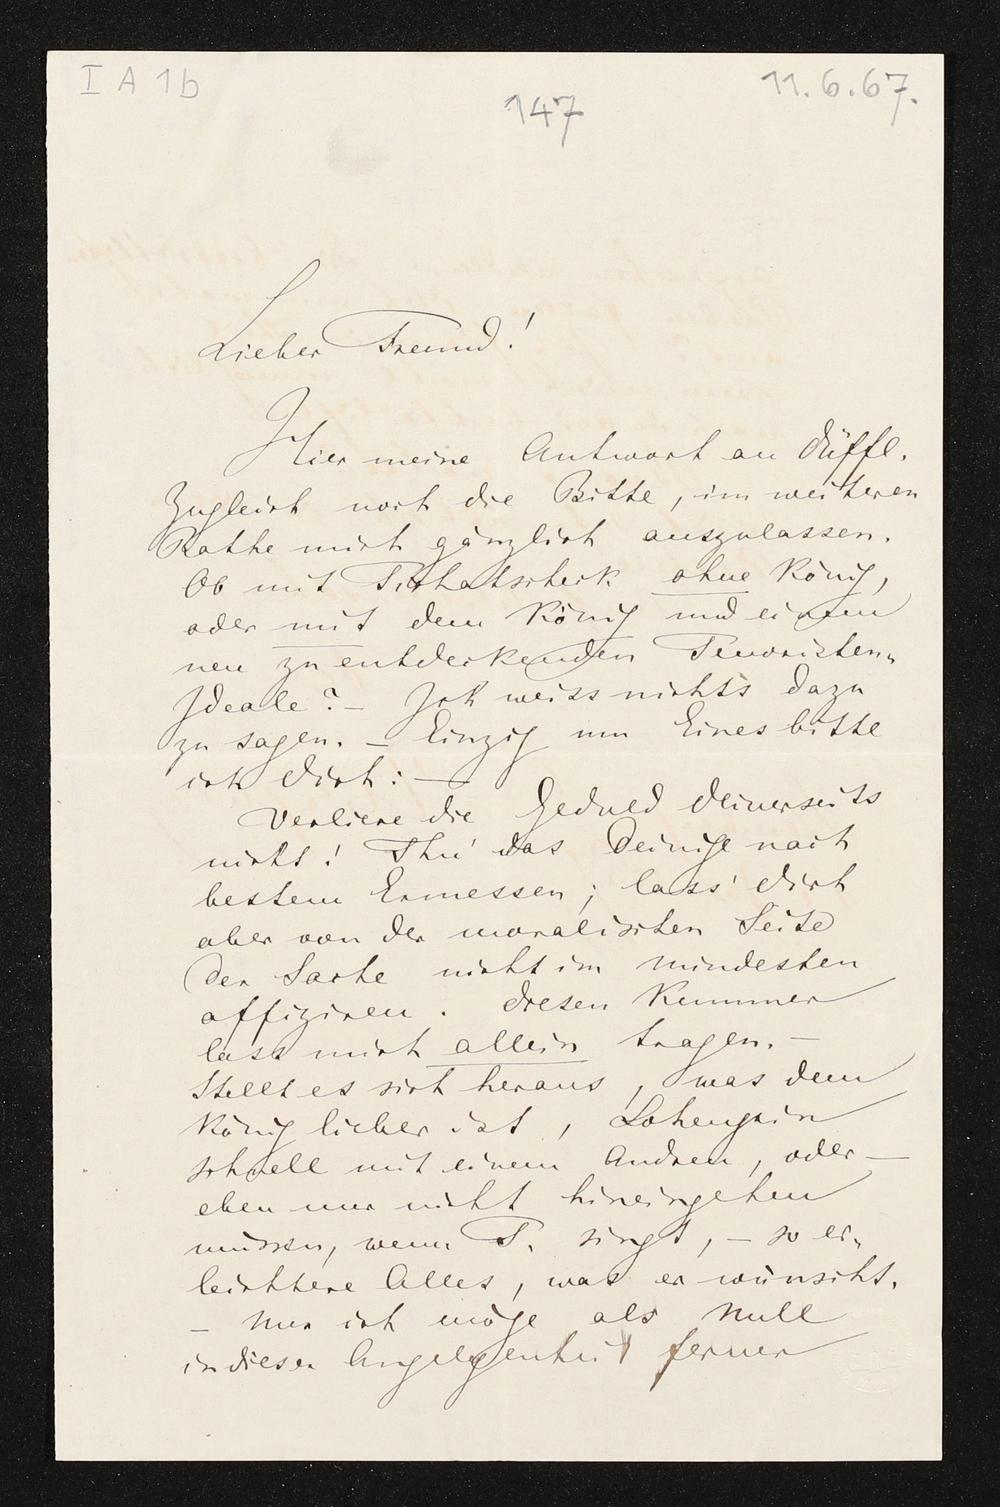 I A 1b
147
11.6.67.
Lieber Freund!
Hier meine Antwort an Düffl.
Zugleich noch die Bitte, im weiteren
Rathe mich gänzlich auszulassen.
Ob mit Tichatscheck ohne König,
oder mit dem König und einem
neu zu entdeckenden Tenoristen-
Ideale? – Ich weiss nichts dazu
zu sagen. – Einzig um Eines bitte
ich Dich: —
Verliere die Geduld Deinerseits
nicht! Thu' das Deinige nach
bestem Ermessen; lass' Dich
aber von der moralischen Seite
der Sache nicht im Mindesten
affiziren. Diesen Kummer
lass mich allein tragen. –
Stellt es sich heraus, was dem
König lieber ist, Lohengrin
schnell mit einem Andren, oder —
eben nur nicht hineingehen
müssen, wenn T. singt, – so er-
leichtere Alles, was er wünscht.
– Nur ich möge als Null
in dieser Angelegenheit ferner